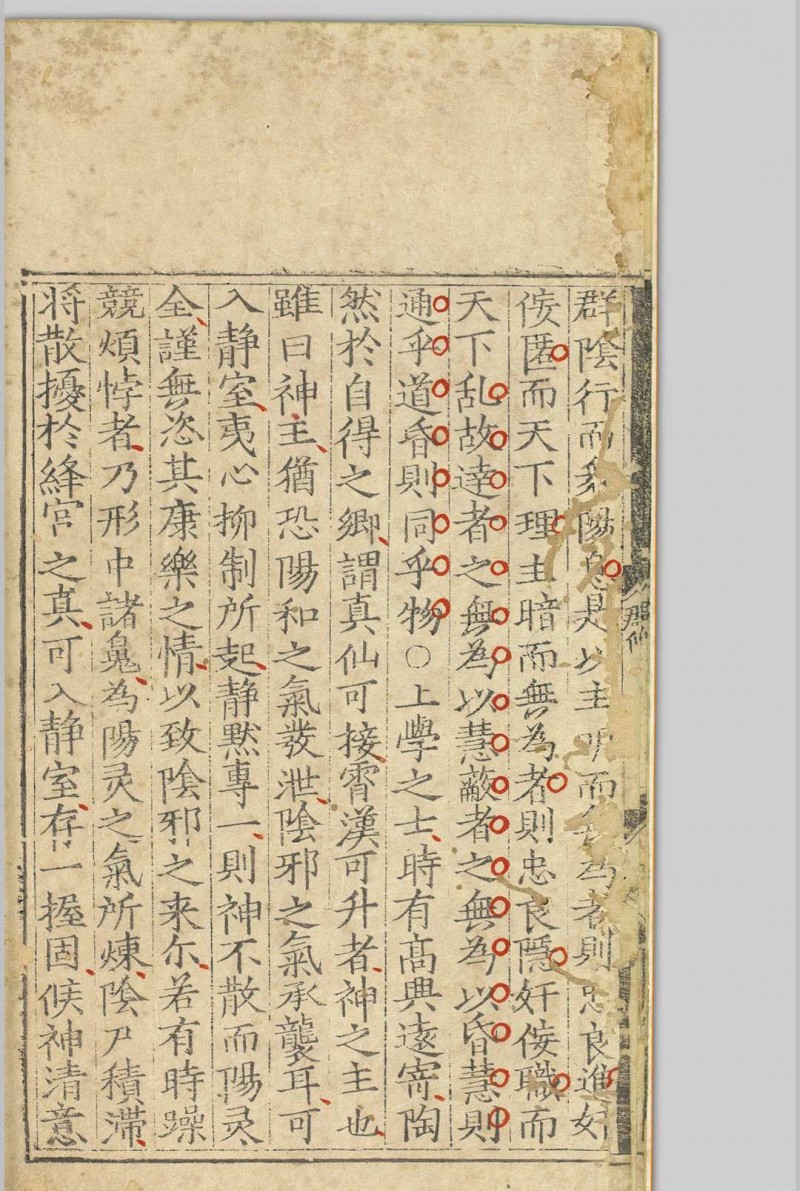 群陰行而衆陽息是以主明而無為者則忠良進奸
侫匿而天下理主暗而無為者則忠良隱奸侫職而
天下乱故達者之無為以慧蔽者之無為以昏慧則
通乎道昏則同乎物○上學之士時有高興遠寄陶
然於自得之鄉謂真仙可接霄漢可升者神之主也
雖曰神主猶恐陽和之氣發泄陰邪之氣承襲耳可
入静室夷心抑制所起静黙專一則神不散而陽灵
全謹無恣其康樂之情以致陰邪之来尓若有時躁
競煩悖者乃形中諸鬼為陽灵之氣所煉陰尸積滯
将散擾於絳宮之真可入静室存一握固候神清意